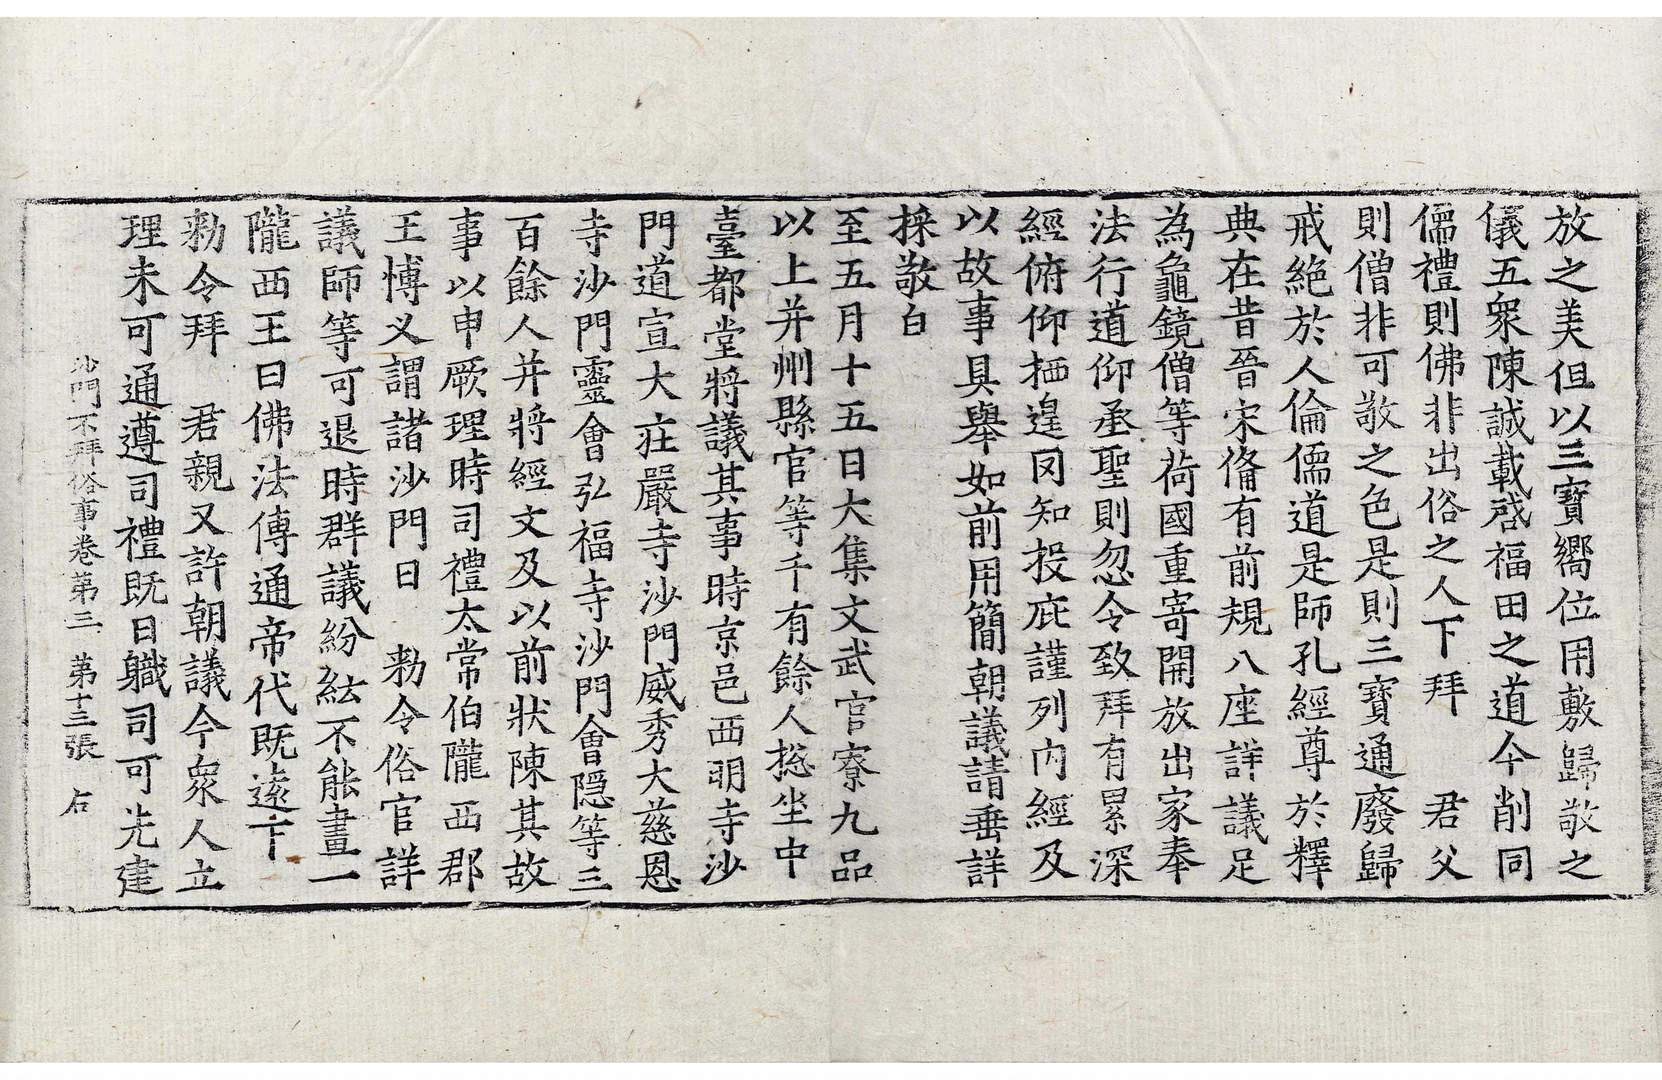 放之美但以三寶嚮位用敷歸敬之
儀五衆陳誠載啓福田之道今削同
儒禮則佛非出俗之人下拜　君父
則僧非可敬之色是則三寶通廢歸
戒絕於人倫儒道是師孔經尊於釋
典在昔晉宋俻有前規八座詳議足
為龜鏡僧等荷國重寄開放出家奉
法行道仰丞聖則忽令致拜有累深
經俯仰栖遑罔知投庇謹列內經及
以故事具舉如前用簡朝議請垂詳
採敬白
至五月十五日大集文武官寮九品
以上并州縣官等千有餘人揔坐中
臺都堂將議其事時京邑西明寺沙
門道宣大莊嚴寺沙門威秀大慈恩
寺沙門靈會弘福寺沙門會隱等三
百餘人并將經文及以前狀陳其故
事以申厥理時司禮太常伯隴西郡
王博乂謂諸沙門曰　勑令俗官詳
議師等可退時群議紛紜不能畫一
隴西王曰佛法傳通帝代既遠下
勑令拜　君親又許朝議今衆人立
理未可通遵司禮既曰職司可先建
沙門不拜俗事卷第三　第十三張　右